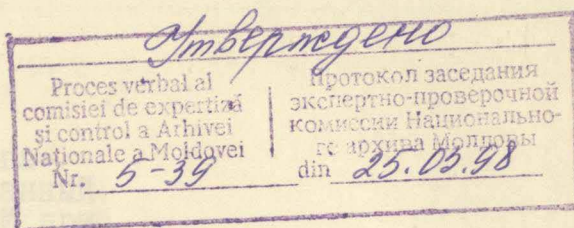 Утверждено
Proces verbal al
comisiei de expertiză
și control a Arhivei
Naționale a Moldovei
Nr. 5-39
Протокол заседания
экспертно-проверочной
комиссии Национально-
го архива Молдовы
din 25.03.98